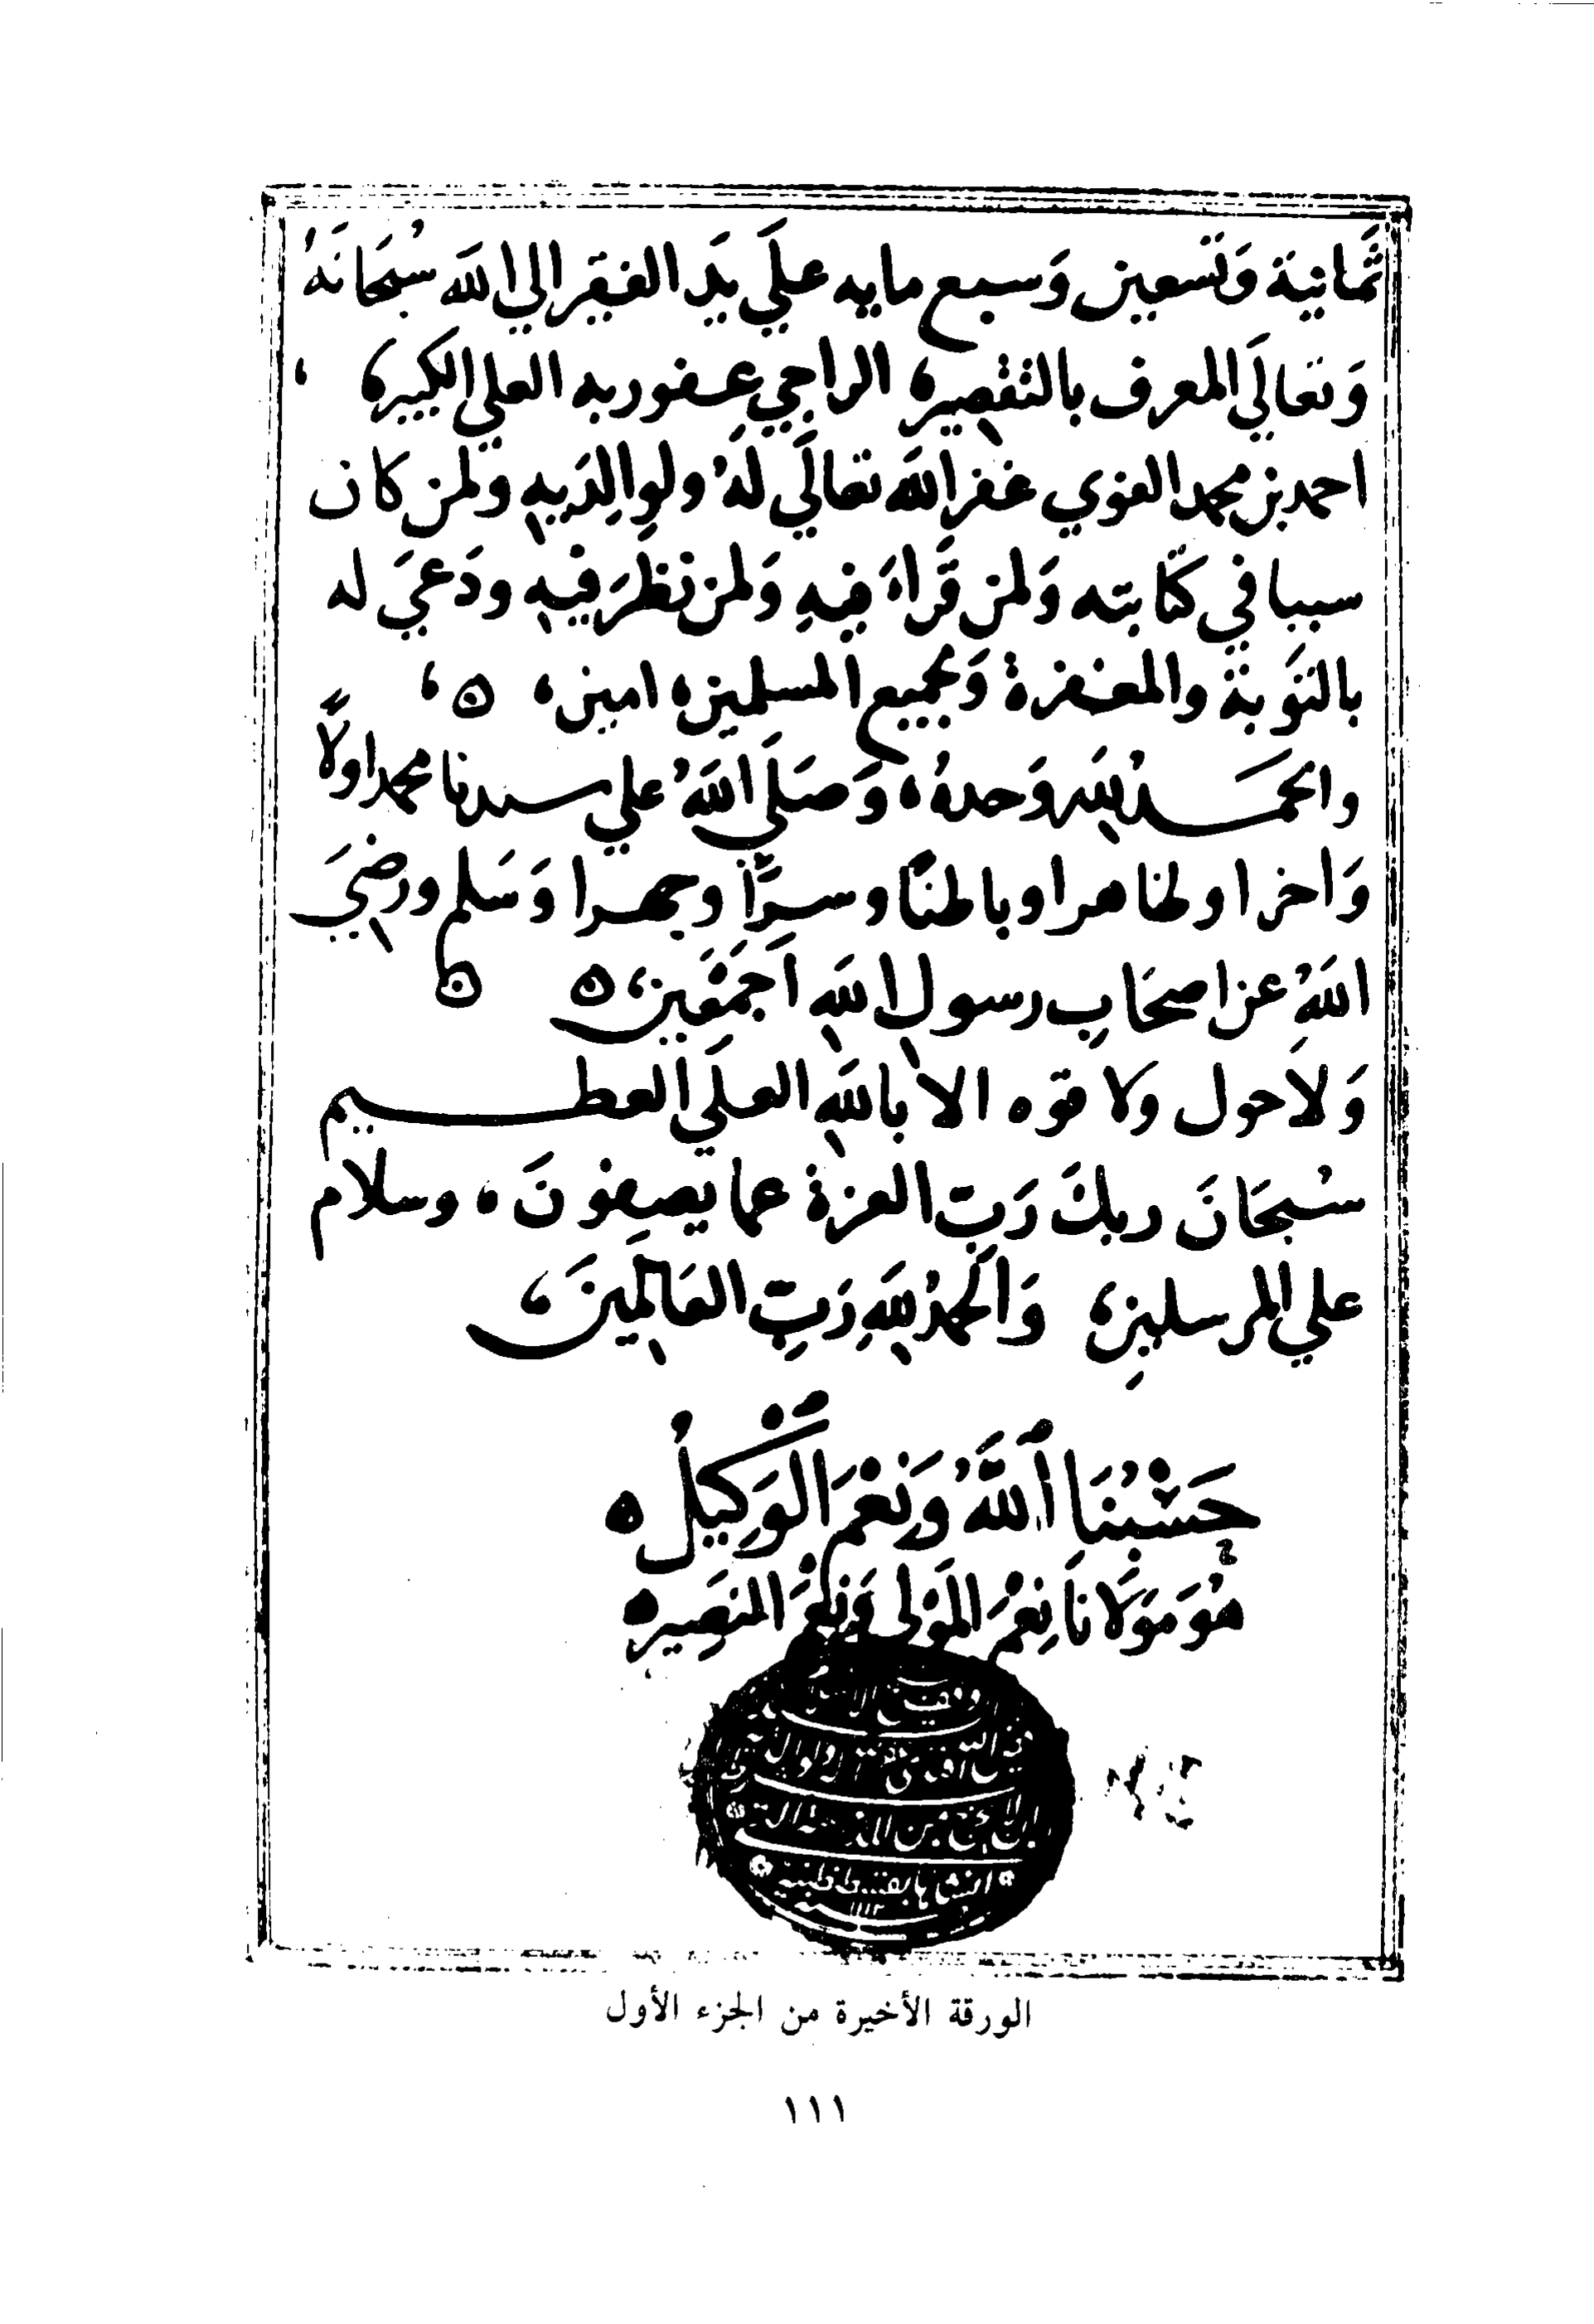 ثَمَانية وَتَسعين وَسبع مايه علَي يَد الفقير الي اللَه سُبحَانَهُ
وَتعالَي المعرف بالتقصير، الراجي عِفو ربه العلي الكبير،
احمد بن محمد الغزي غفر اللَه تعالَي لَهُ ولوالِدَيهِ ولمن كان
سببا في كتَابته وَلمن قَراءَ فيهِ وَلمن نظَرَ فيهِ ودَعيَ له
بالتَوبَة والمغفرة وَلجميع المسلمين، امين، ه
والحمَدُ للَه وَحدهُ، وَصَلَي اللَهُ علي سيدنا محمد اولاً
وَاخرا وظاهرا وباطنًا وسرًّا وجهرا وَسَلم ورضيَ
اللَهُ عن اصحَابِ رسول اللَهِ اَجمَعَين، ه ه
وَلاَحول ولا قوه الا باللَهِ العلَي العظيم
سُبحَانَ ربكَ رَبِ العزة عما يصِفونَ، وسلام
علي المرسلين، وَالحمدُ للَهِ رَبِ العَالمِينَ،
حَسْبُنَا اَللَّهُ وَنَعْمَ الْوَكِيلُ ه
هُوَ مَوْلَانَا نِعْمَ المَوْلى وَنِعْمَ النصِير ه
١١١٣
الورقة الأخيرة من الجزء الأول
١١١